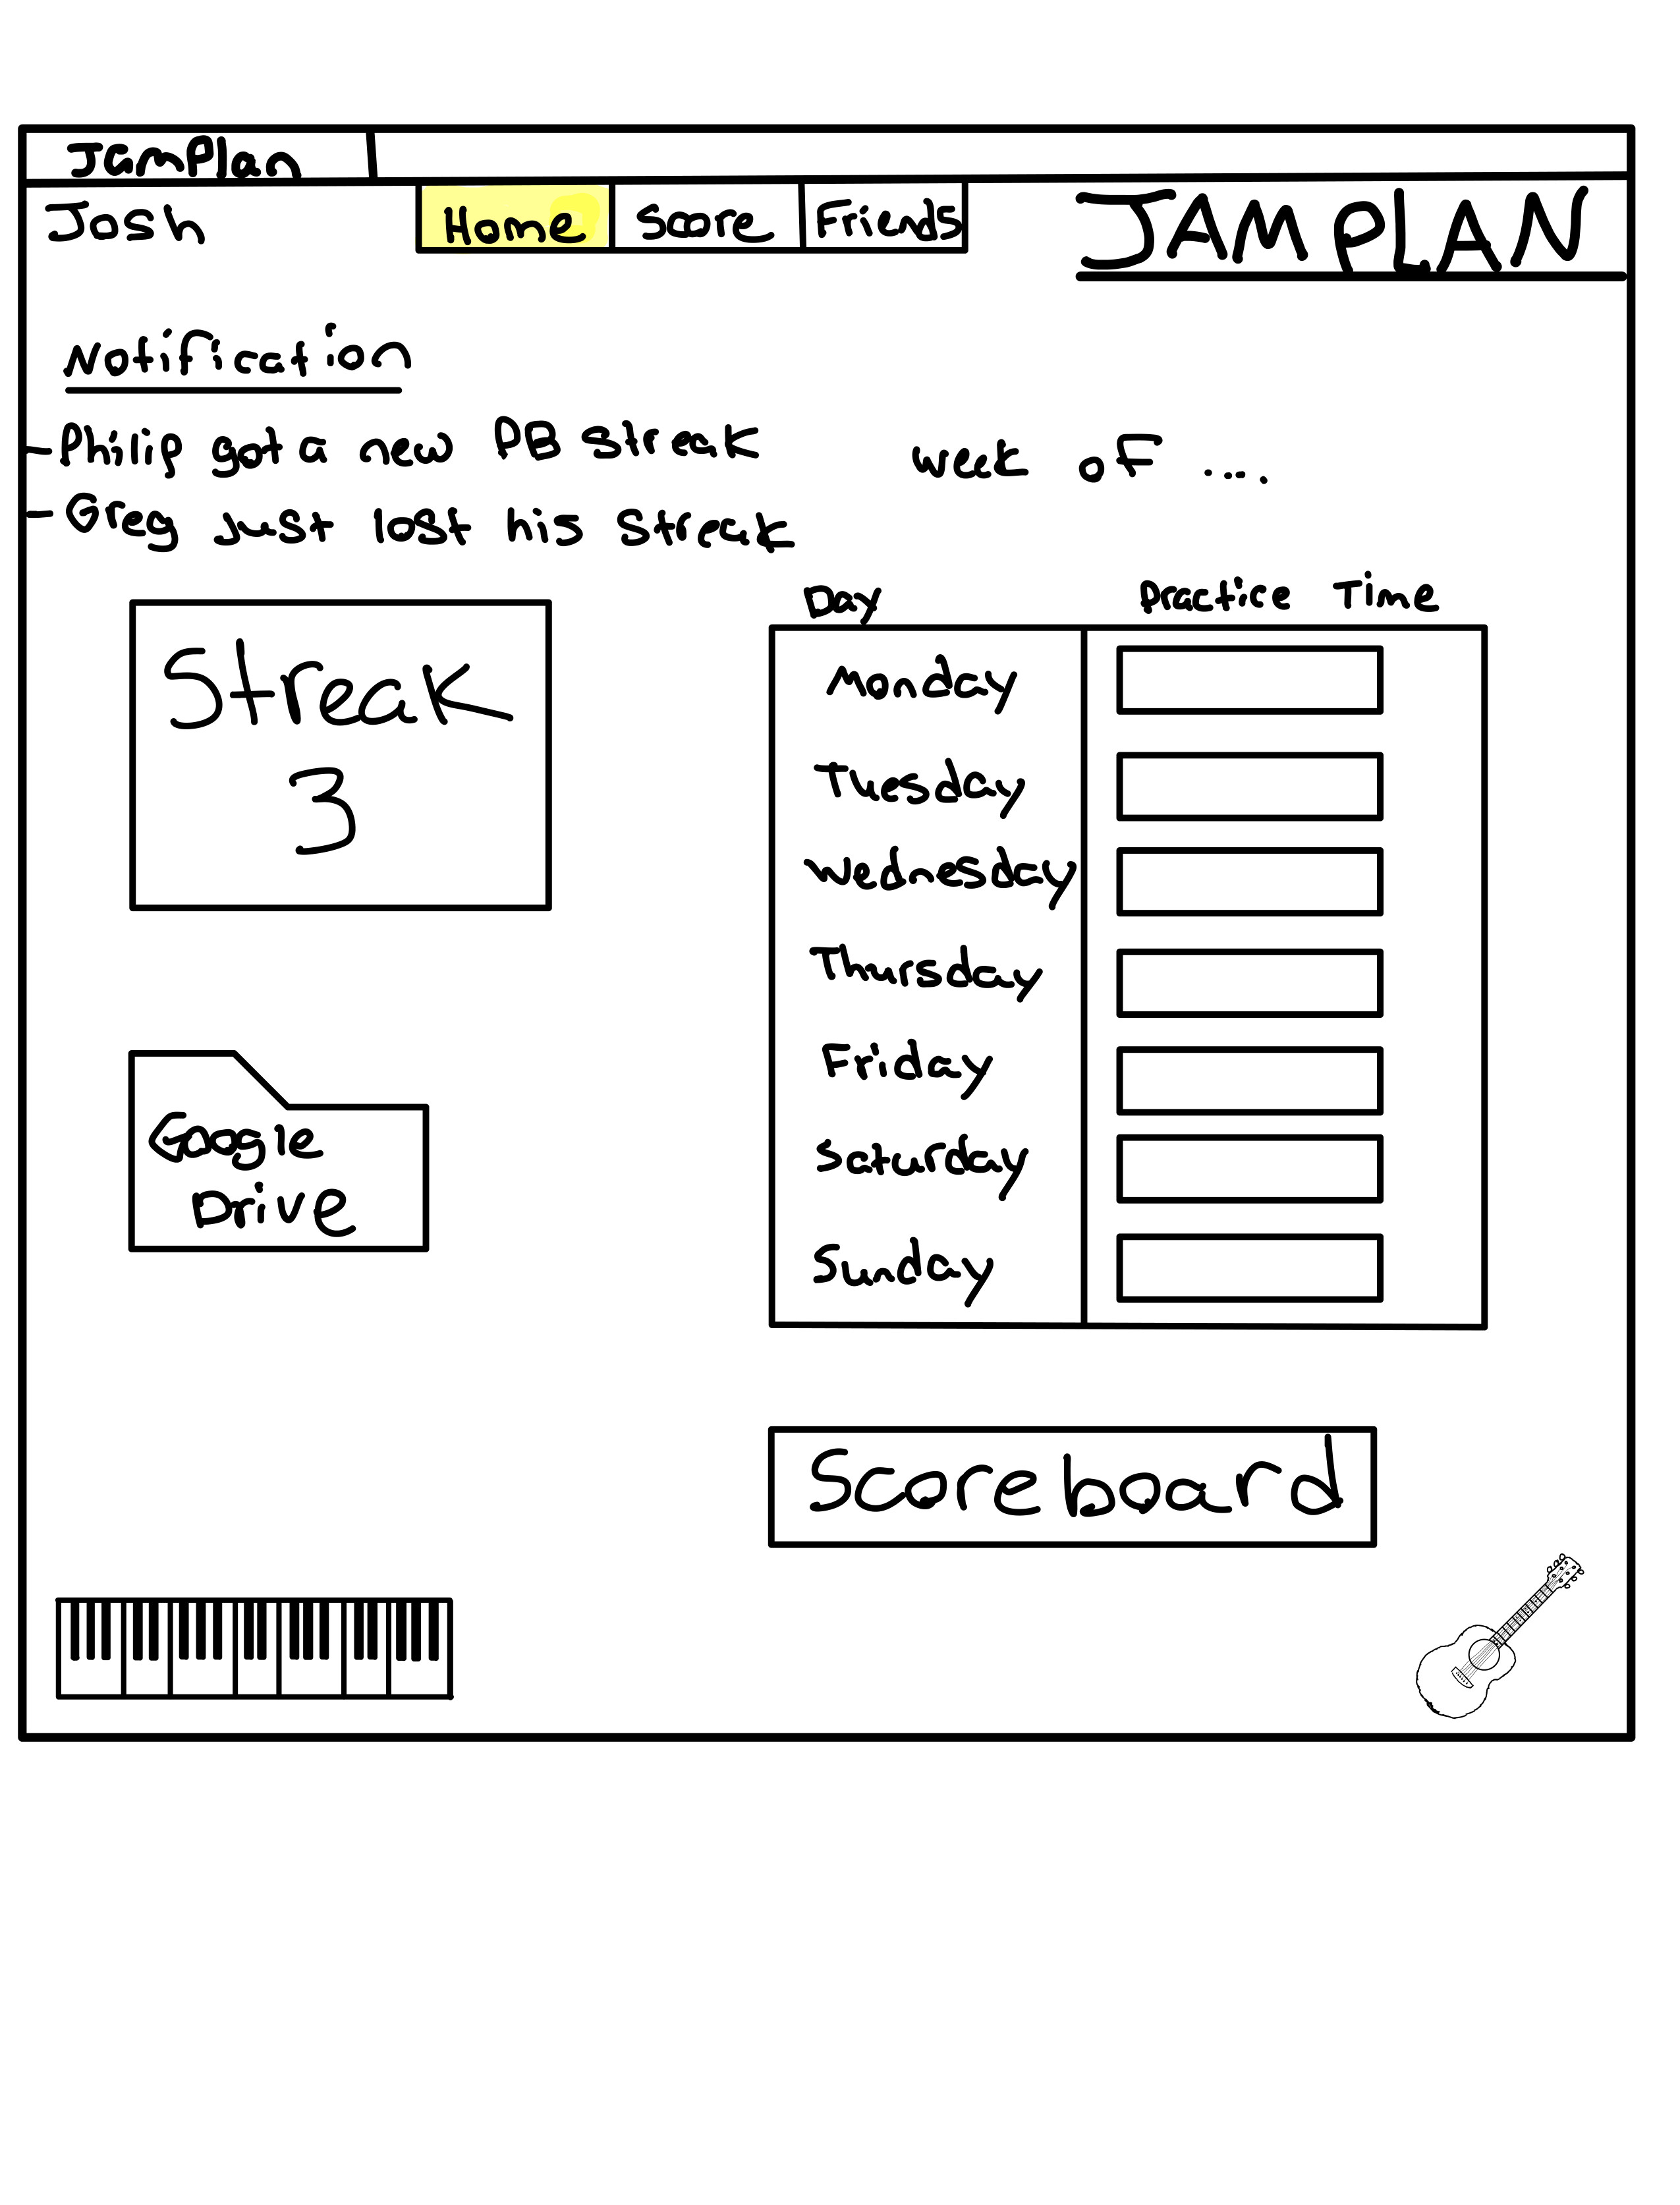 JamPlan
Josh
Home
Score
Friends
JAMPLAN
Notification
- Philip got a new PB streak
- Greg just lost his streak
week of ....
Streak
3
Day
Practice Time
Monday
Tuesday
Wednesday
Thursday
Friday
Saturday
Sunday
Google
Drive
Scoreboard